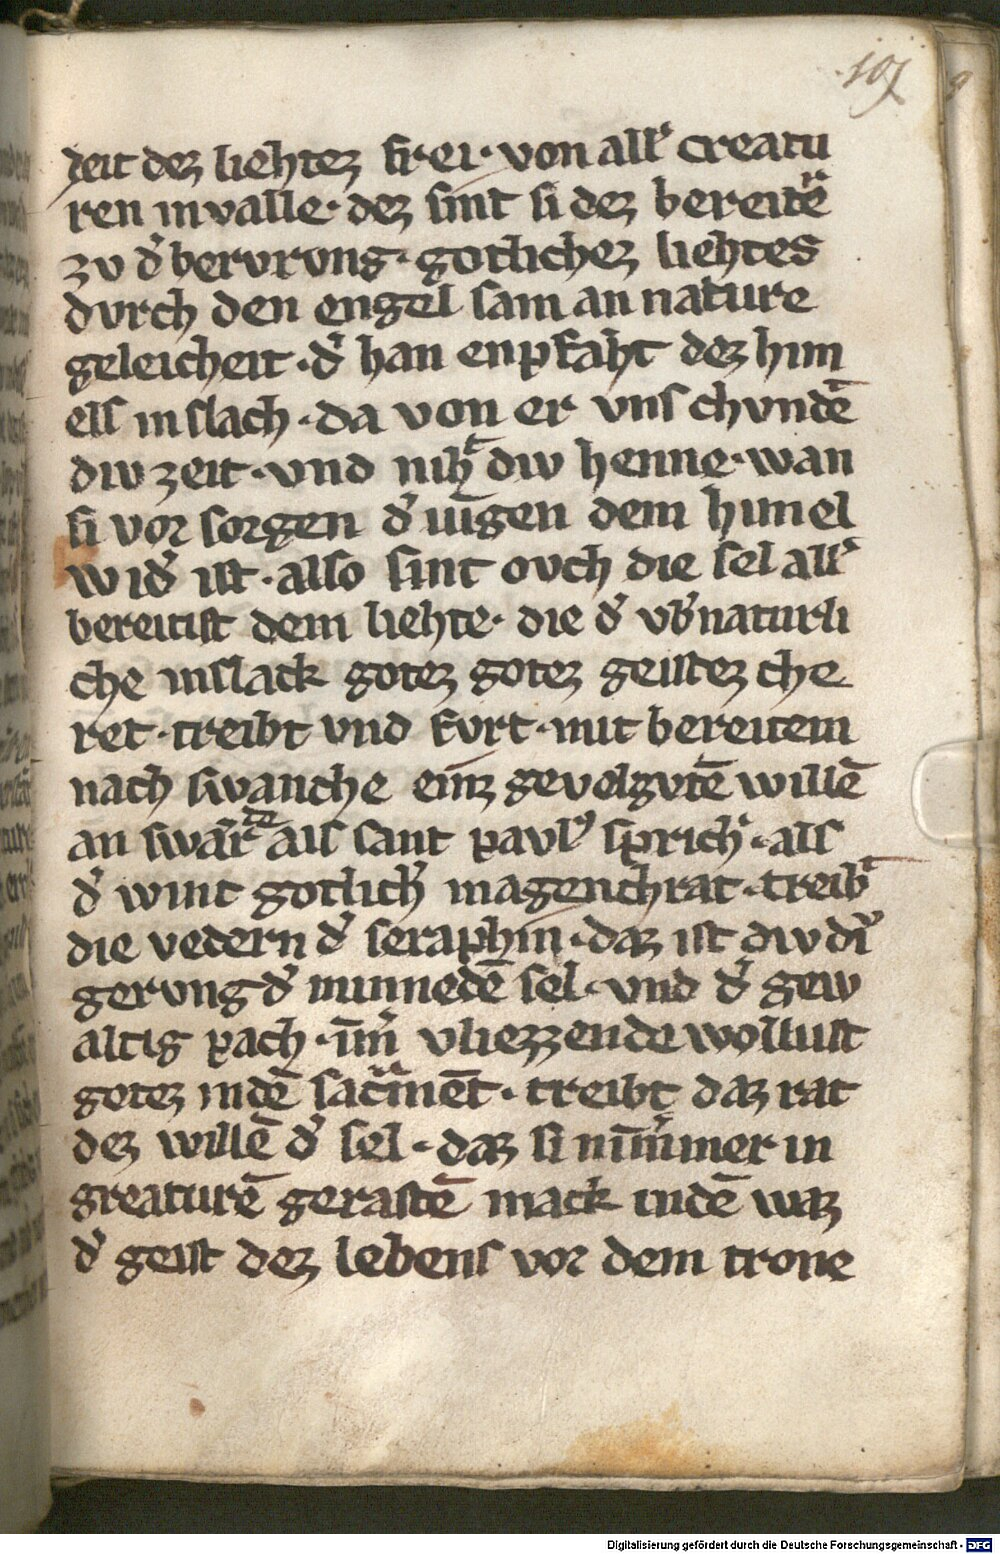 107
deit dez liehtez fr ei · von all̉ creatu
ren invalle · dez sint si dez bereitē
zv d̉ bervrvng · gotlichez liehtes
dvrch den engel sam an nature
geleicheit · d̉ han enpfaht dez him
els inslach · da von er vns chvndē
div zeit · vnd niht div henne · wan
si vor sorgen d̉ iūgen dem himel
wid̉ ist · also sint ovch die sel all̉
bereitist dem liehte · die d̉ vb̉naturli
che inslack gotez gotez geistez che
ret · treibt vnd fvrt · mit bereitem
nach swanche einz gevolgvtē willē
an swār als sant pavlꝰ sprich̉ · als
d̉ wint gotlich̉ magenchrat · treibt
die vedern d̉ seraphin · daz ist div
gervng d̉ minnedē sel · vnd d̉ gew
altig pach · vliezzende wollust
gotez indē sacͣmēt · treibt daz rat
dez willē d̉ sel · daz si nimmer in
greaturē gerastē mack indē waz
d̉ geist dez lebens vor dem trone
Digitalisierung gefördert durch die Deutsche Forschungsgemeinschaft - DFG